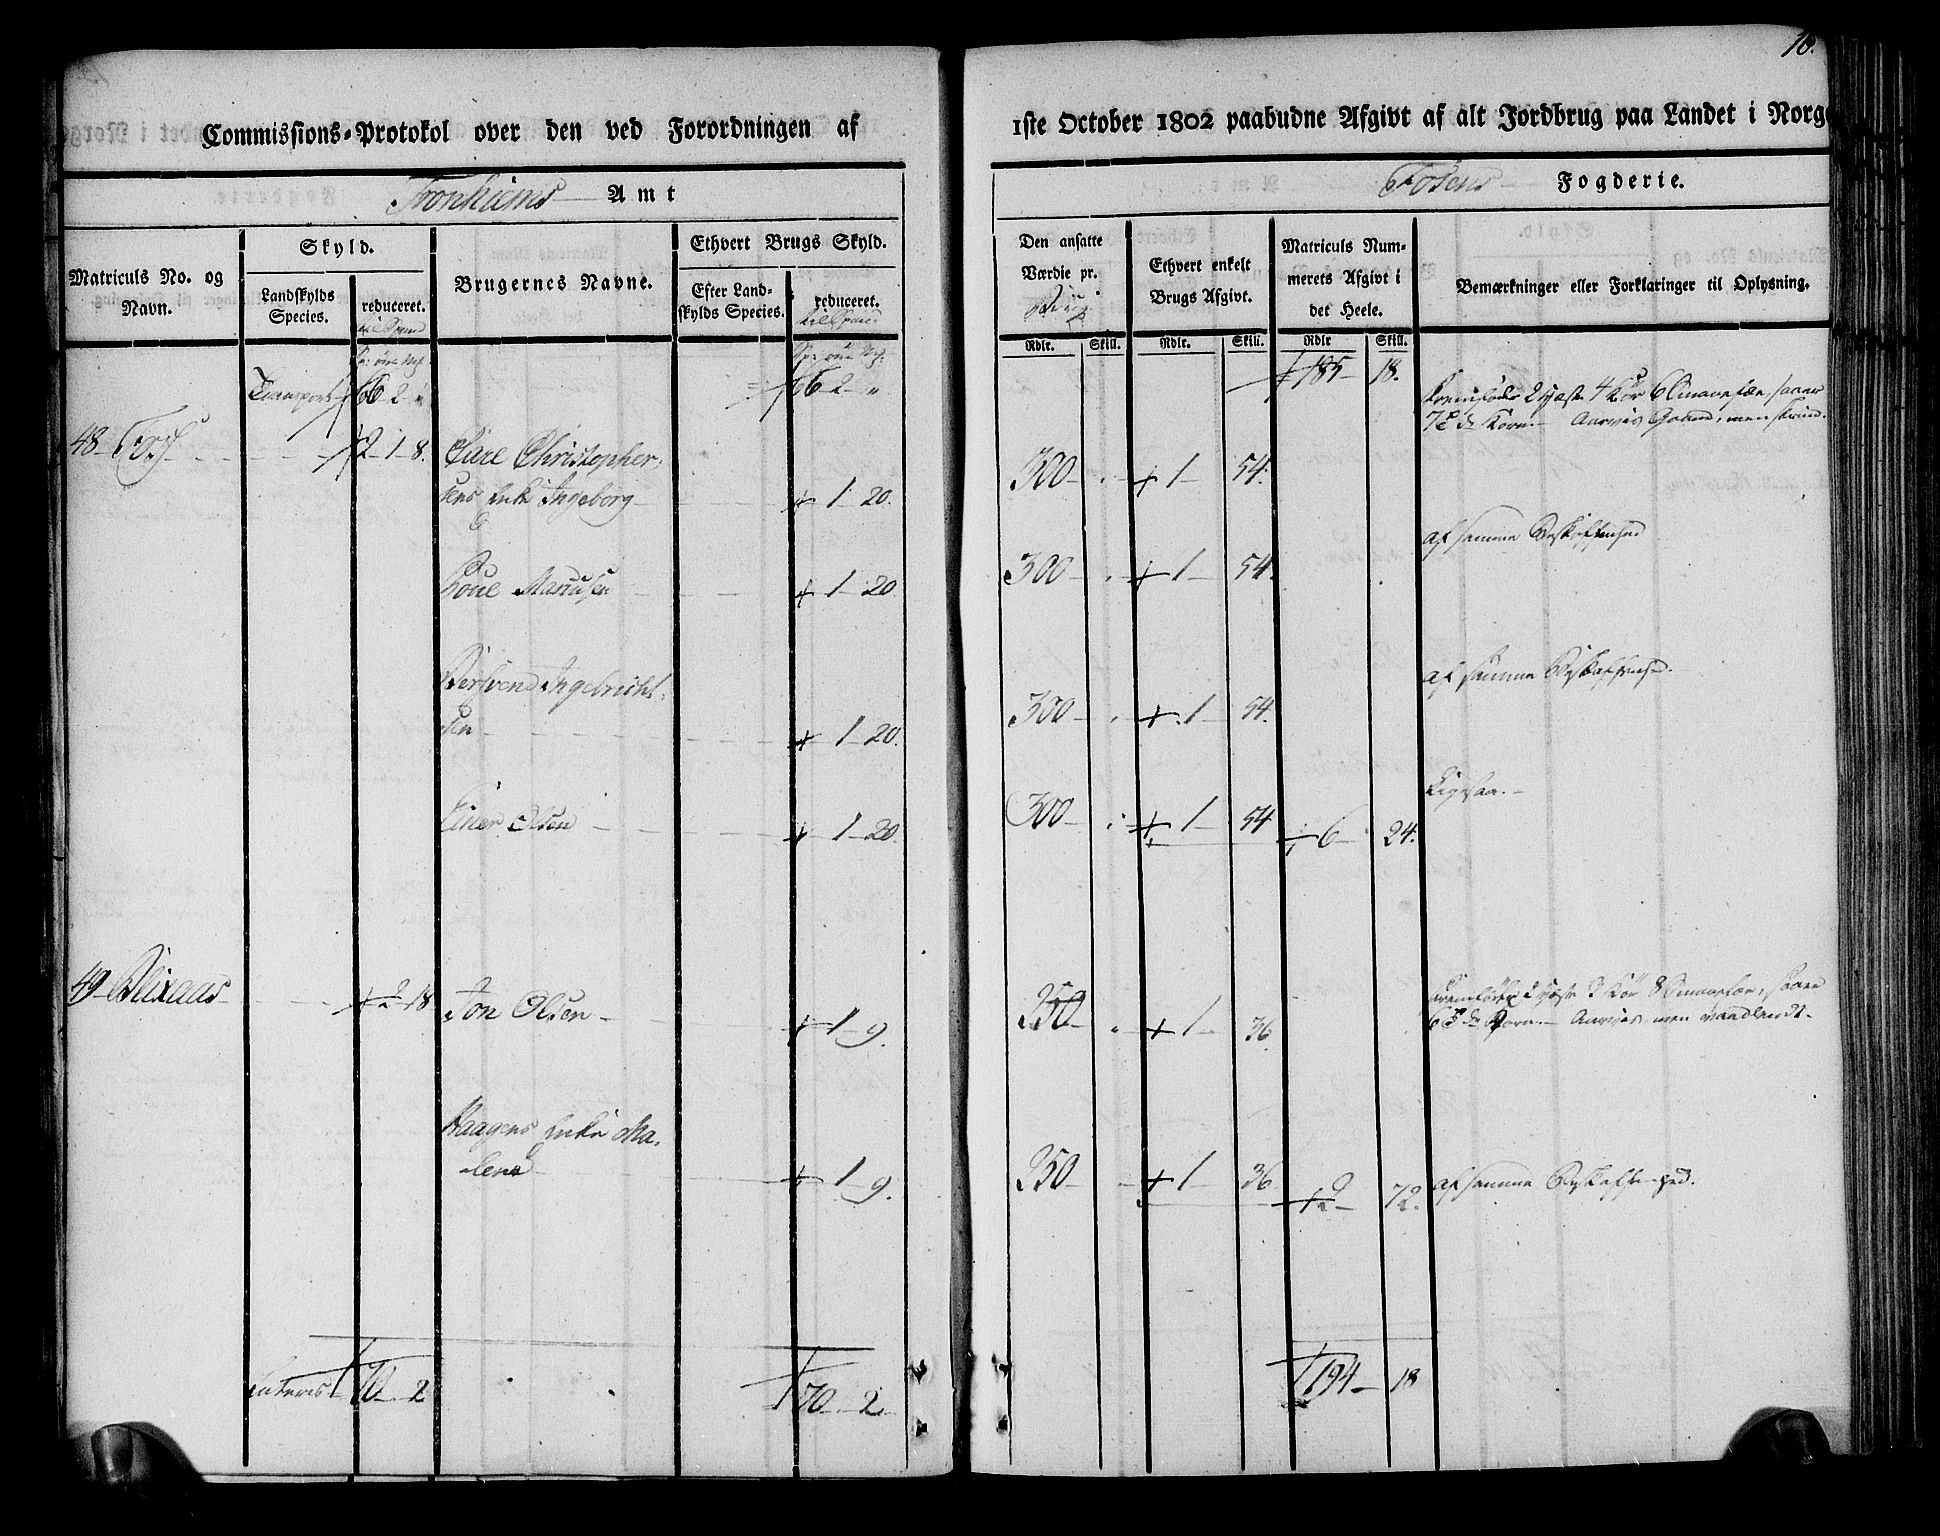 10.
Commissions-Protokol over den ved Forordningen af 1ste October 1802 paabudne Afgivt af alt Jordbrug paa Landet i Norge
Tronhiems Amt
Fosens Fogderie.
Matriculs No. og Navn.
Skyld.
Landskylds Species.
reduceret.
Brugernes Navne.
Ethvert Brugs Skyld.
Efter Landskylds Species.
reduceret.
Den ansatte Værdie pr.
Ethvert enkelt Brugs Afgivt.
Matriculs Nummerets Afgivt i det Heele.
Bemærkninger eller Forklaringer til Oplysning.
Rdlr. Skill. Rdlr. Skill. Rdlr Skill.
Transport 66 2 „ 66 2 „ 185 18.
48 2 1 8. Christopher-
sens Enke Ingeborg 1 20. 300 1 54.
1 20 300 1 54. af samme Beskaffenhed
Ingebricht-
sen 1 20. 300 1 54. af samme Beskaffenhed.
Einer Olsen 1 20. 300 1 54 6 24. Ligesaa.
49 Blixaas 2 18 Jon Olsen 1 9. 250 1 36.
Haagens Enke Ma-
lena 1 9. 250 1 36 2 72. af samme Beskaffenhed.
Lateris 70 2 70 2 194 18